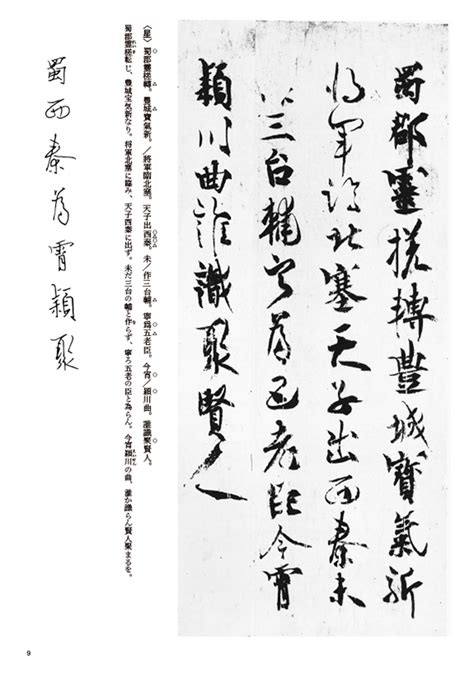 蜀郡靈槎轉豊城寳氣新
将軍臨北塞天子出西秦未
作三台輔寧為五老臣今霄
穎川曲誰識聚賢人
〈星〉蜀郡靈槎轉。豊城寶氣新。／將軍臨北塞。天子出西秦。未／作三台輔。寧爲五老臣。今宵／穎川曲。誰識聚賢人。
蜀郡霊槎転じ、豊城宝気新なり。将軍北塞に臨み、天子西秦に出ず。未だ三台の輔と作らず、寧ろ五老の臣と為らん。今宵穎川の曲、誰か識らん賢人聚まるを。
蜀西秦為霄穎聚
9